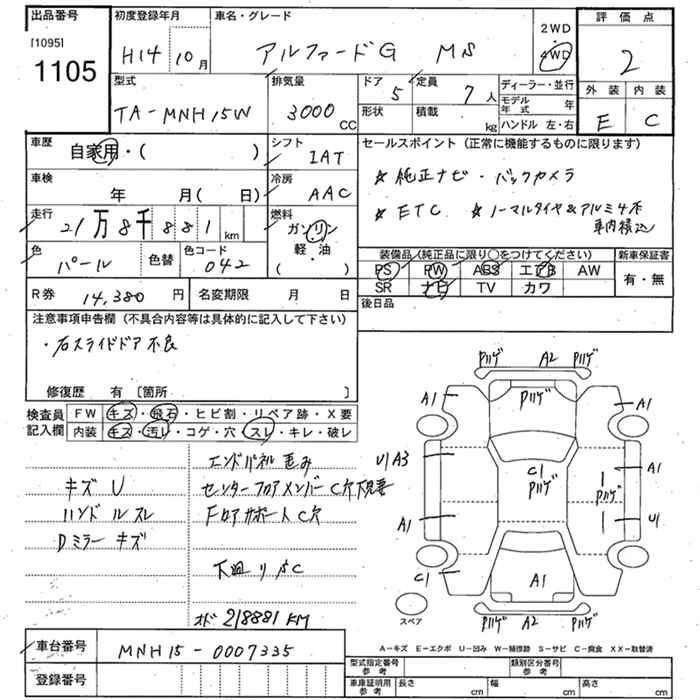 出品番号
[1095]
1105
初度登録年月
H14 10月
車名・グレード
アルファードG MS
2WD
4WD
評価点
2
外装 内装
E C
型式
TA-MNH15W
排気量
3000 CC
ドア 5
形状
定員 7人
積載 kg
ディーラー・並行
モデル年式 年
ハンドル 左・右
車歴
自家用・( )
シフト
IAT
車検
年 月( 日)
冷房
AAC
走行
21万8千881km
燃料
ガソリン
軽・油
( )
色
パール
色替
色コード
042
R券 14,380円
名変期限 月 日
セールスポイント(正常に機能するものに限ります)
☆純正ナビ・バックカメラ
☆ETC ☆ノーマルタイヤ&アルミ4本
車内積込
装備品(純正品に限り○をつけてください)
PS PW ABS エアB AW
SR ナビ TV カワ
新車保証書
有・無
後日品
注意事項申告欄(不具合内容等は具体的に記入して下さい)
・右スライドドア不良
修復歴 有 [箇所 ]
検査員記入欄
FW キズ・飛石・ヒビ割・リペア跡・X要
内装 キズ・汚レ・コゲ・穴・スレ・キレ・破レ
キズ U
ハンドルスレ
Dミラーキズ
エンドパネル歪み
センターフロアメンバーC穴
FロアサポートC穴
下廻りSC
オド 218881KM
Pハゲ A2 Pハゲ
A1 Pハゲ A1
U1 A3 C1 Pハゲ A1
Pハゲ
A1 U1
C1 A1
スペア
Pハゲ A2 Pハゲ
A-キズ E-エクボ U-凹み W-補修跡 S-サビ C-腐食 XX-取替済
車台番号 MNH15-0007335
登録番号
型式指定番号 参考
類別区分番号 参考
車庫証明用 参考
長さ cm
幅 cm
高さ cm